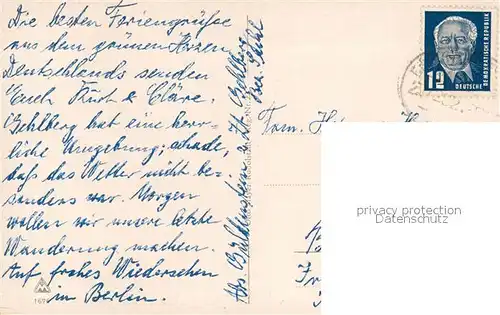 Die besten Feriengrüße
aus dem grünen Herzen
Deutschlands senden
Euch Kurt & Cläre.
Gehlberg hat eine herr-
liche Umgebung; schade,
daß das Wetter nicht be-
sonders war. Morgen
wollen wir unsere letzte
Wanderung machen.
Auf frohes Wiedersehen
in Berlin.
Abs. z. Zt. Gehlberg
Fam.
12
DEUTSCHE
DEMOKRATISCHE REPUBLIK
privacy protection
Datenschutz